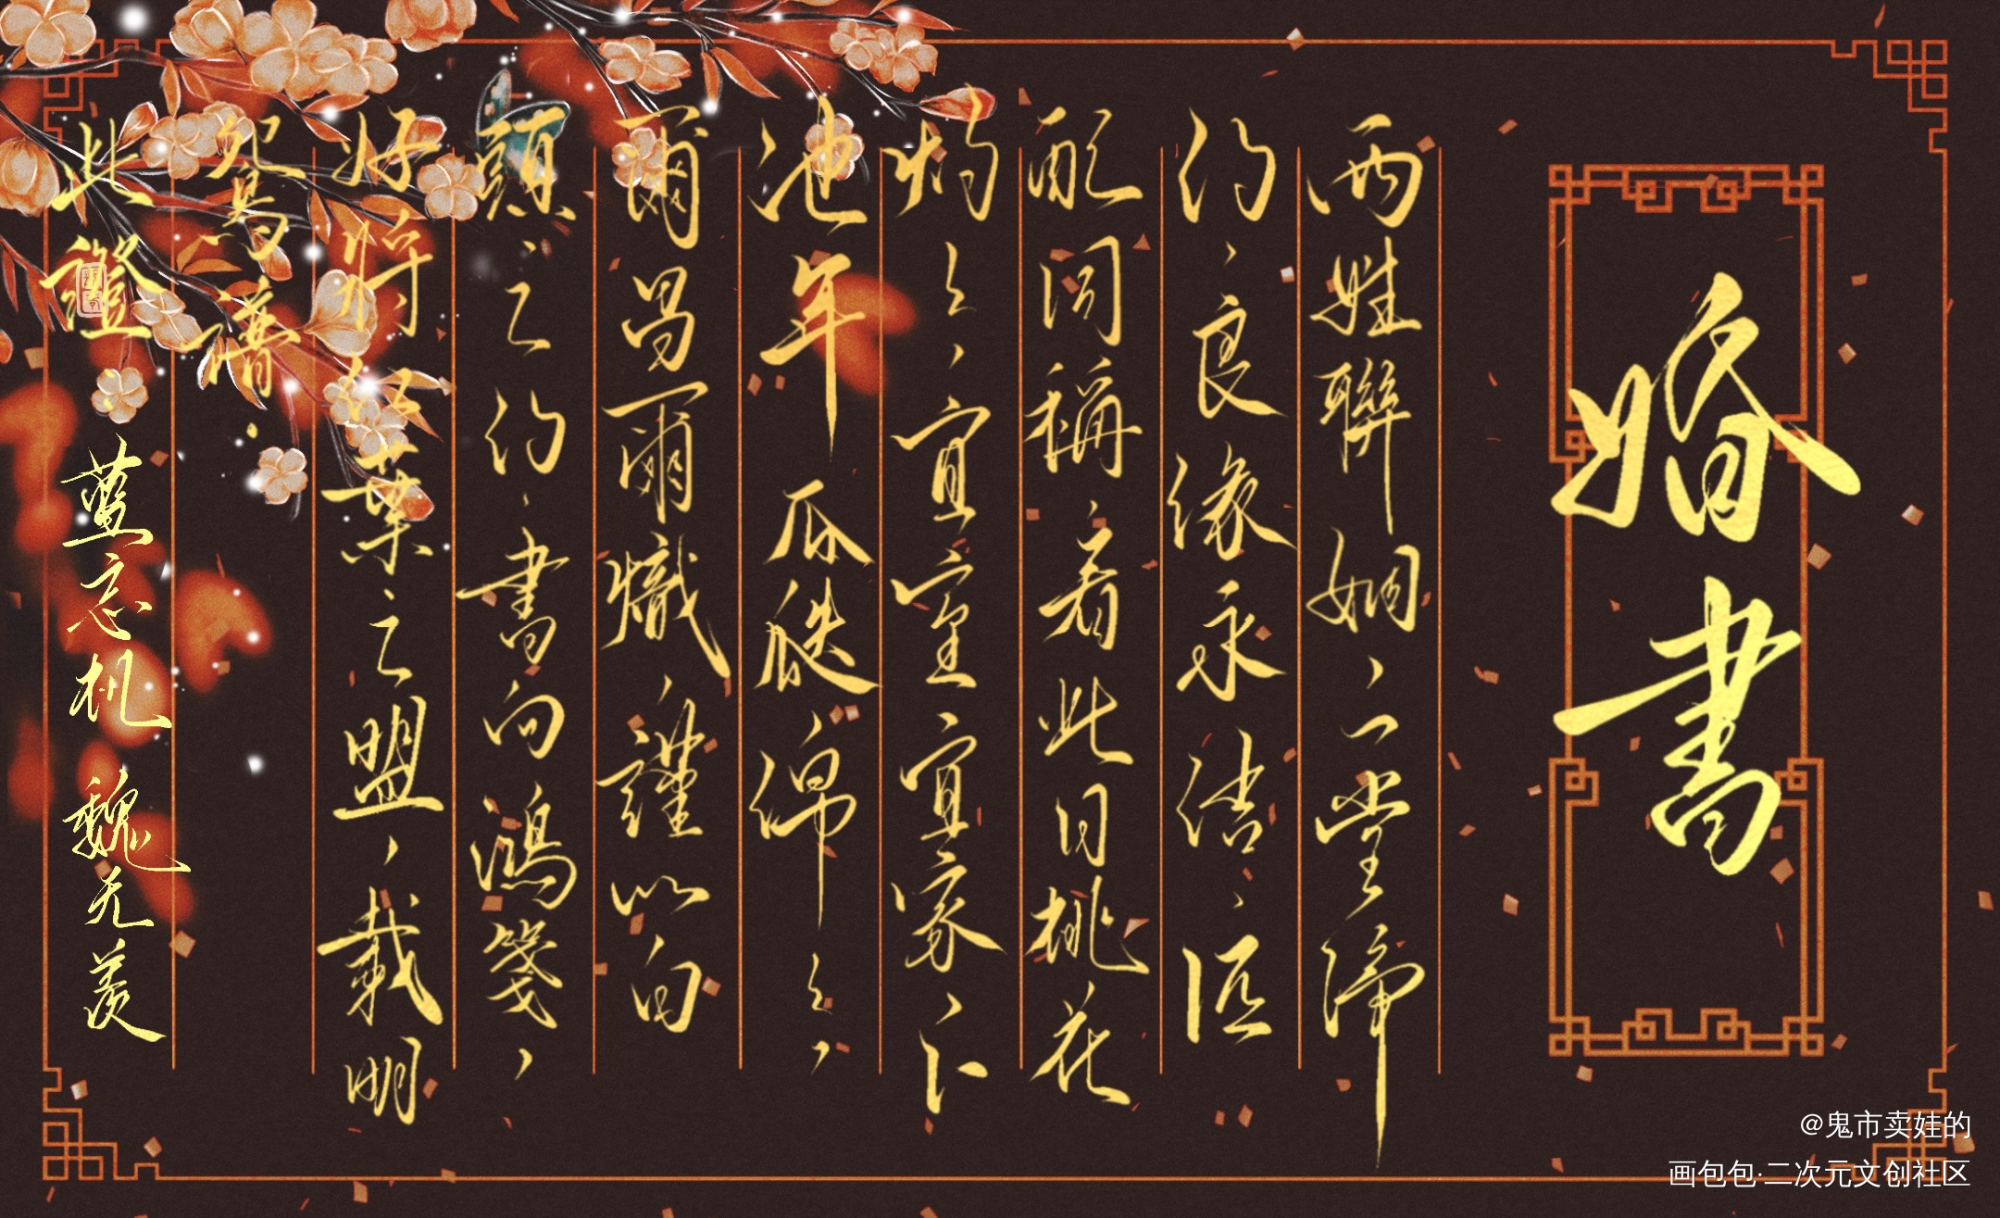 婚書
两姓聯姻，一堂締
约，良缘永结，匹
配同稱，看此日桃花
灼灼，宜室宜家，卜
他年瓜瓞綿綿，
爾昌爾熾，謹以白
頭之约，書向鴻箋，
好将红葉之盟，載明
鸳譜。
此證。蓝忘机 魏无羡
@鬼市卖娃的
画包包·二次元文创社区